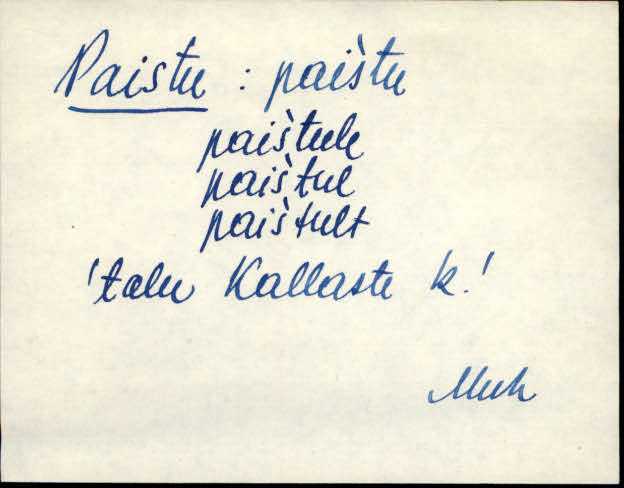 Paistu : paìstu
paìstule
paìstul
paìstult
'talu Kallaste k.'
Muh